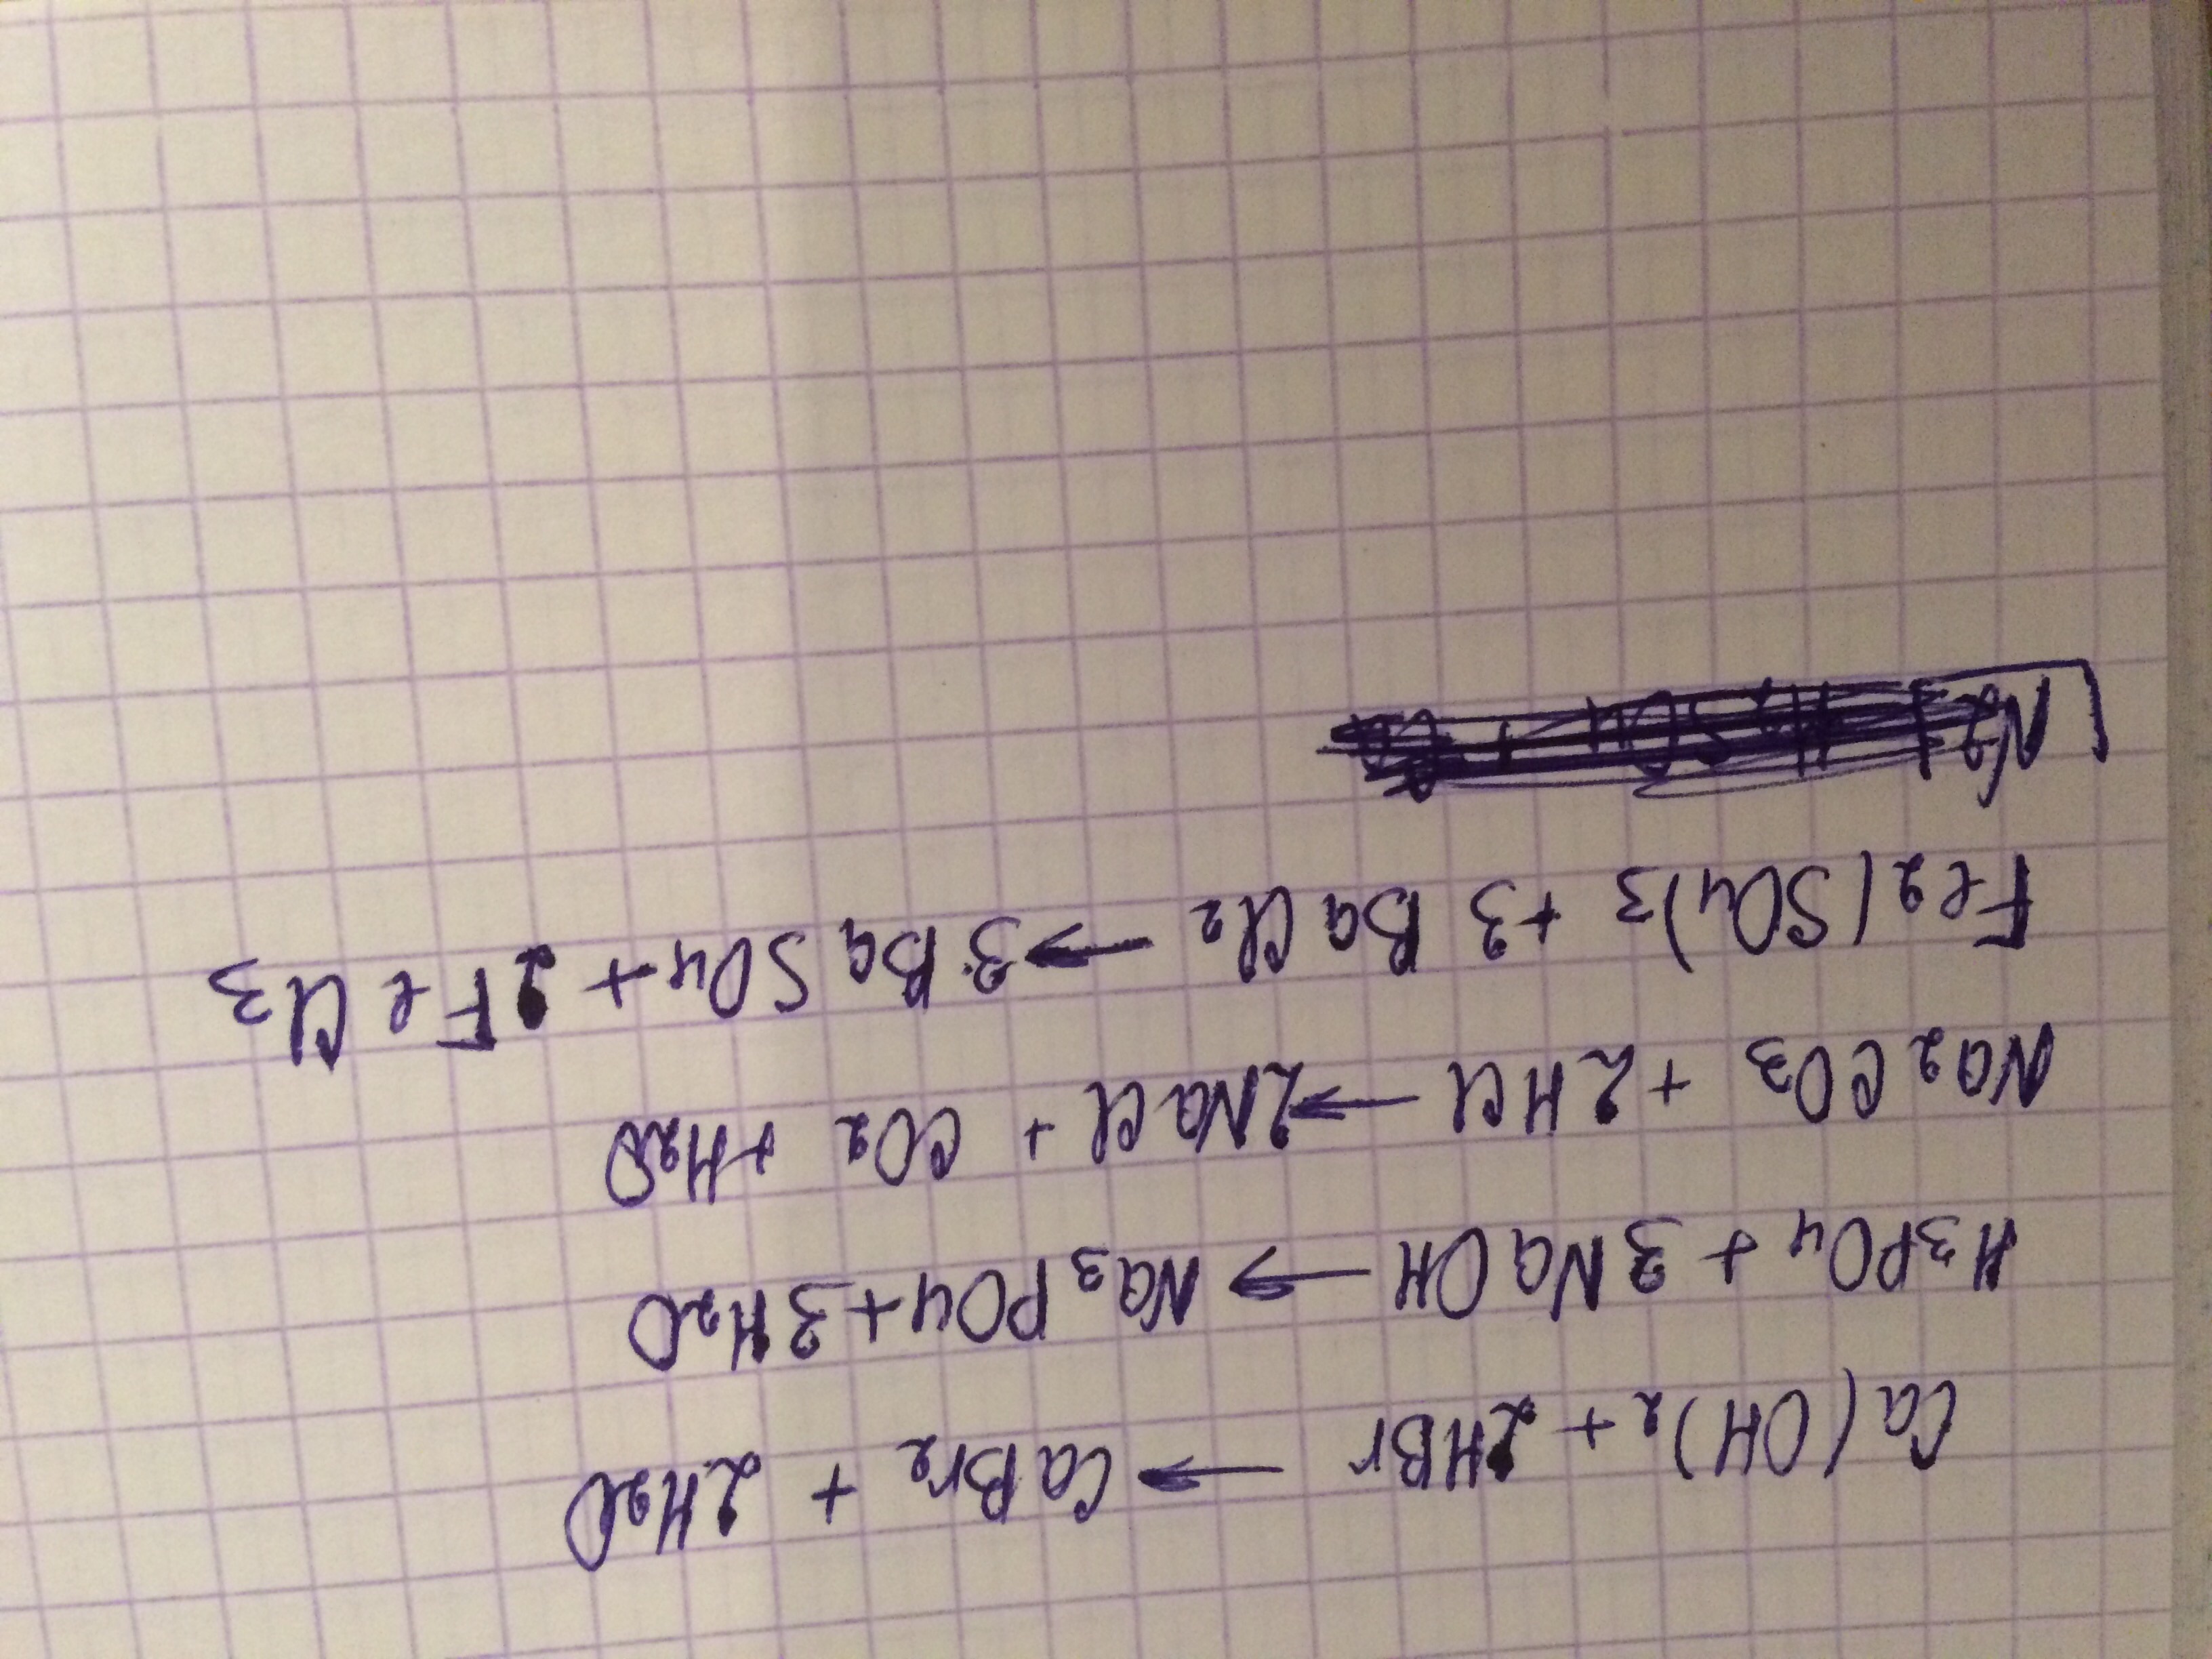 Ca(OH)₂ + 2HBr → CaBr₂ + 2H₂O
H₃PO₄ + 3NaOH → Na₃PO₄ + 3H₂O
Na₂CO₃ + 2HCl → 2NaCl + CO₂ + H₂O
Fe₂(SO₄)₃ + 3BaCl₂ → 3BaSO₄ + 2FeCl₃